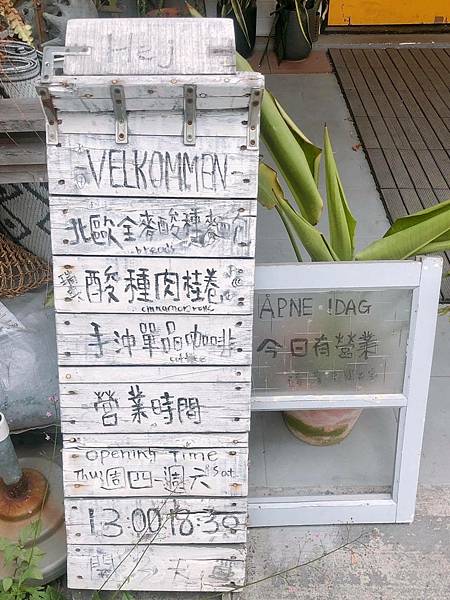 Hej
VELKOMMEN
北歐全麥酸種麵包
bread
酸種肉桂卷
cinnamon rolls
手沖單品咖啡
coffee
營業時間
opening Time
Thu 週四-週六 Sat
13:00 18:30
ÅPNE IDAG
今日有營業